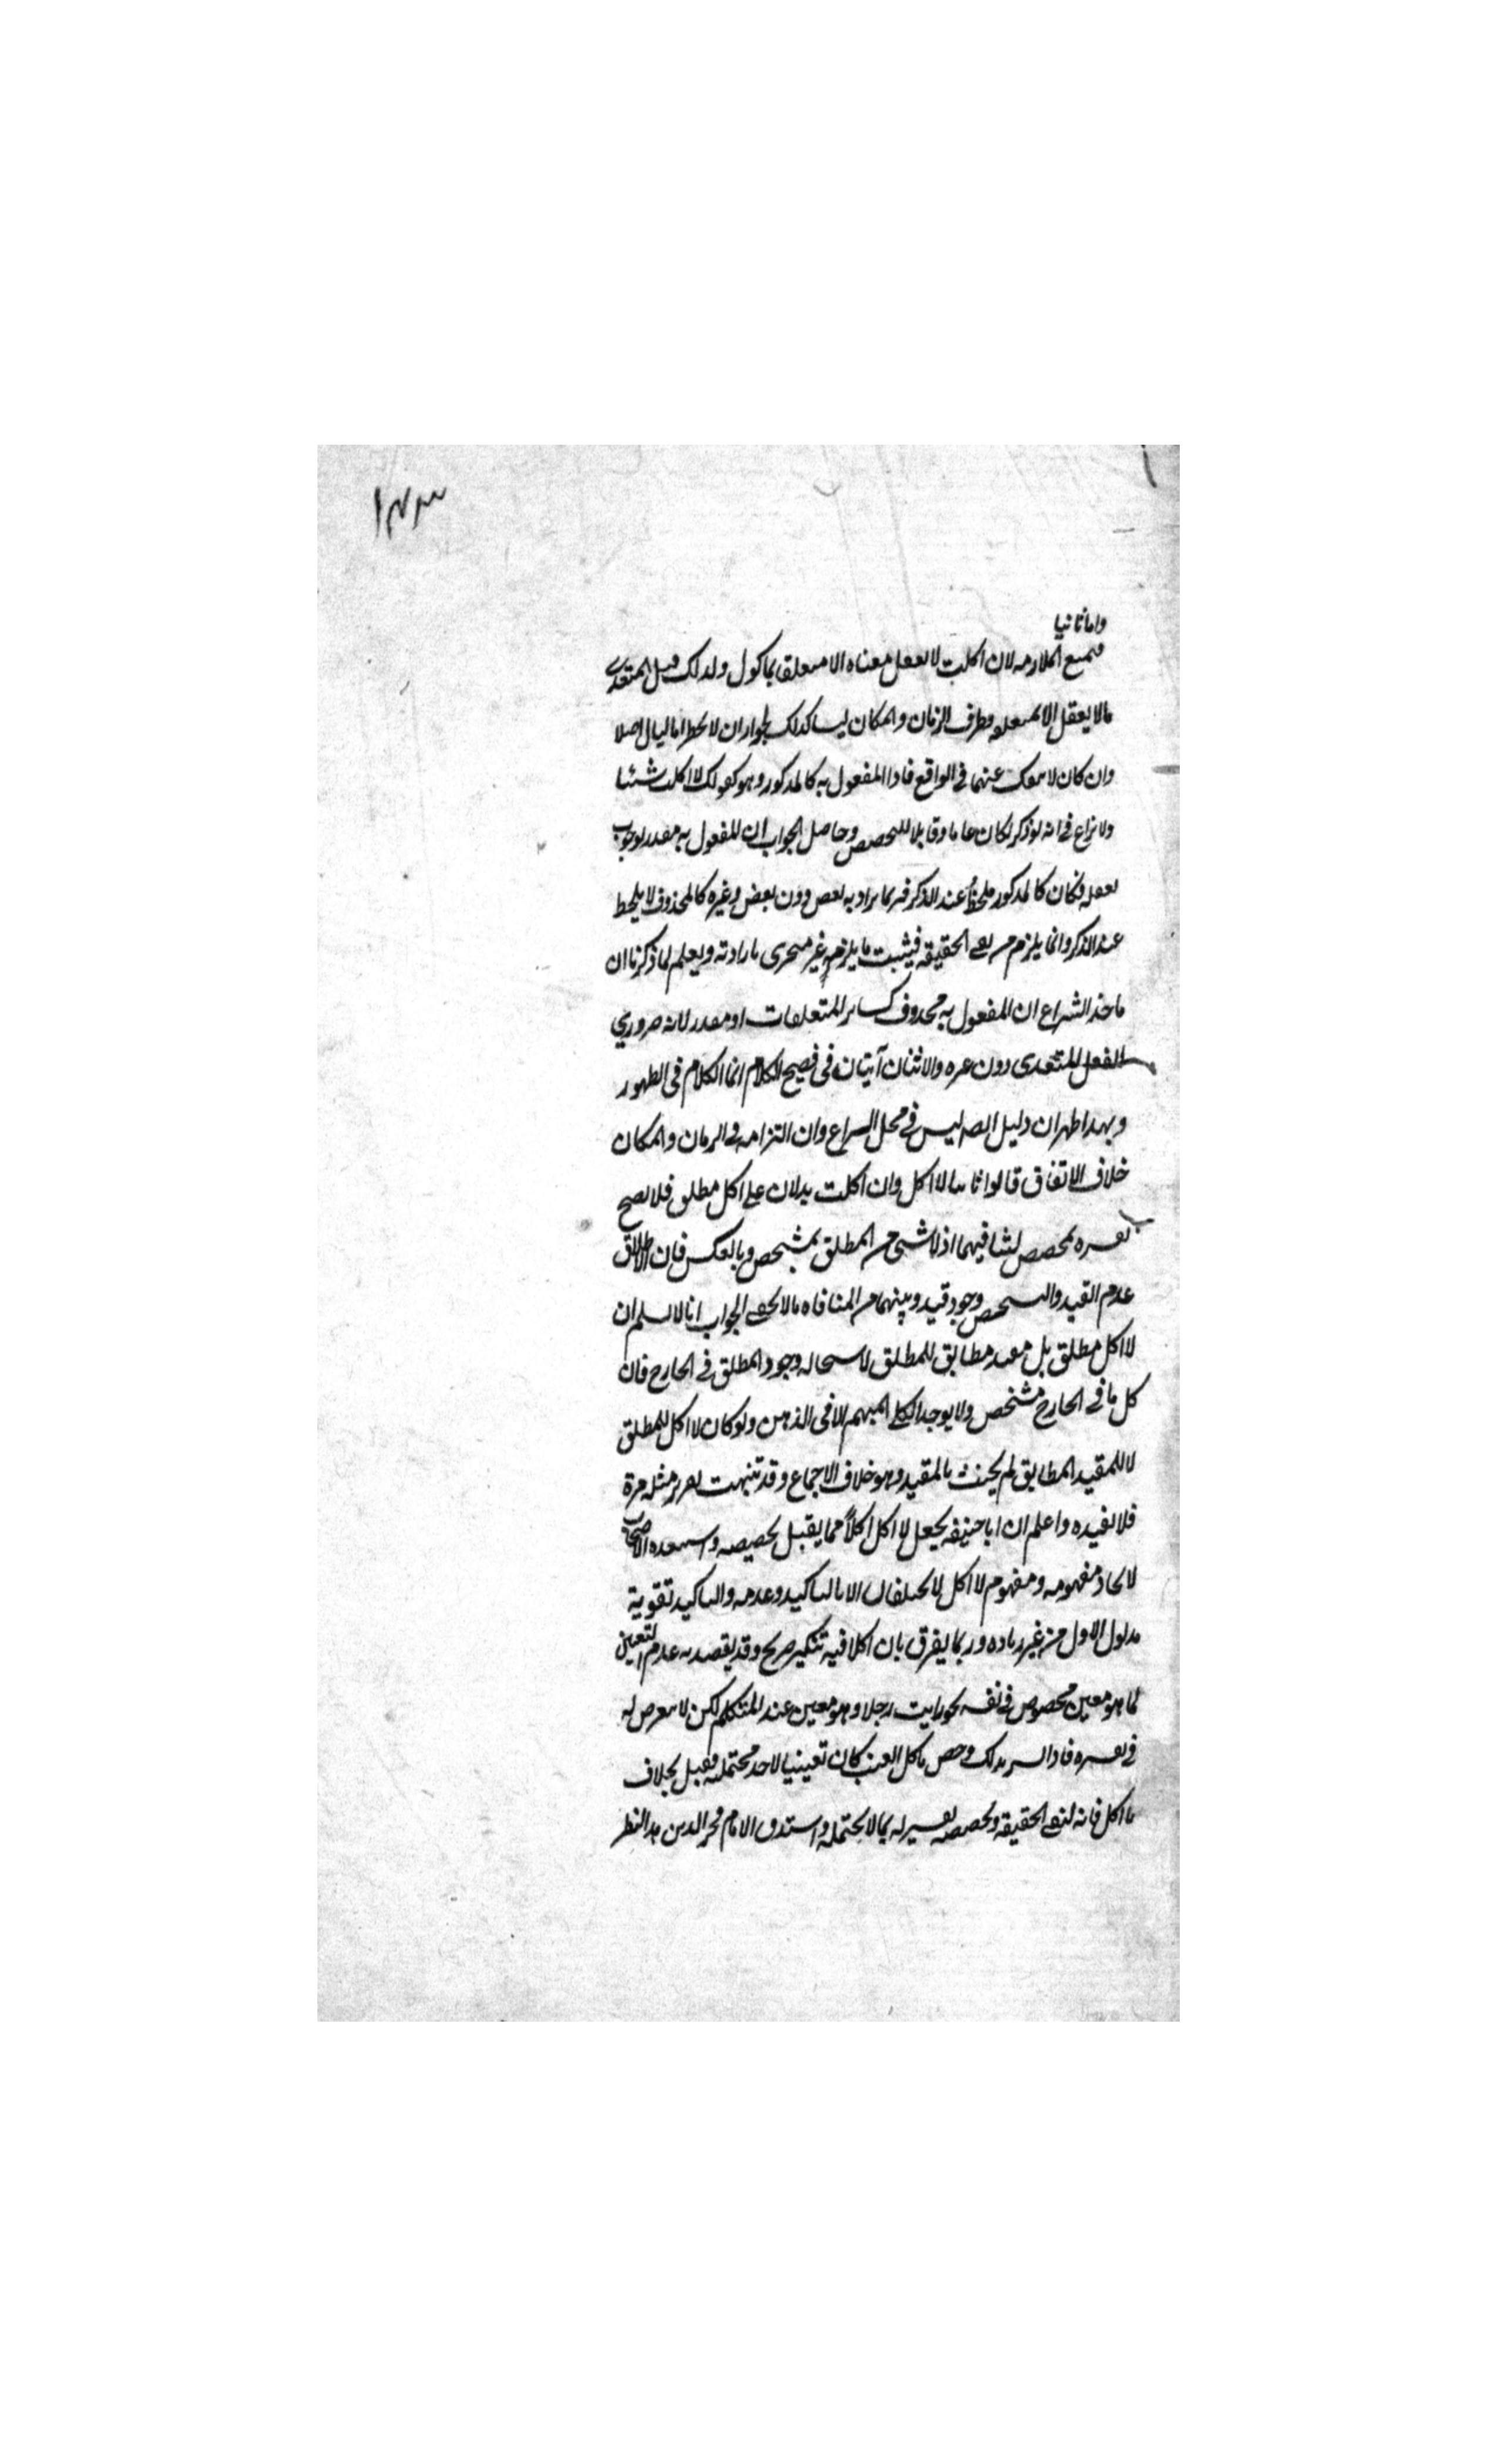 ١٤٣
واما ثانيا
فبمنع الملازمه لان اكلت لا يعقل معناه الا متعلق بماكول ولذلك قيل المتعدي
مالا يعقل الا بمتعلقه وظرف الزمان والمكان ليسا كذلك لجواز ان لا يخطرا بالبال اصلا
وان كان لا ينفك عنهما في الواقع فاذا المفعول به كالمذكور وهو كقولك لا اكلت شيئا
ولا نزاع في انه لو ذكر لكان عاما وقابلا للتخصيص وحاصل الجواب ان المفعول به مقدر لوجوب
تعقله فكان كالمذكور ملحوظ عند الذكر فربما يراد به بعض دون بعض وغيره كالمحذوف لا يلحظ
عند الذكر وانما يلزم من نفي الحقيقه فيثبت ما يلزم غير متجزى بارادته ويعلم لما ذكرنا ان
ماخذ النزاع ان المفعول به محذوف كساير المتعلقات او مقدر لانه ضروري
الفعل المتعدى دون غيره والاثنان آتيتان في فصيح الكلام انما الكلام في الظهور
وبهذا ظهر ان دليل الصه ليس في محل النزاع وان التزامه في الزمان والمكان
خلاف الاتفاق قالوا ثانيا لا اكل وان اكلت يدلان على اكل مطلق فلا يصح
تفسيره بمخصص لتنافيهما اذ لا شئ من المطلق بمشخص وبالعكس فان الاطلاق
عدم القيد والتشخص وجود قيد وبينهما من المنافاه مالا يخفى الجواب انا لا نسلم ان
لا اكل مطلق بل مقيد مطابق للمطلق لاستحاله وجود المطلق في الخارج فان
كل ما في الخارج مشخص ولا يوجد الكلي المبهم الا في الذهن ولو كان لا اكل للمطلق
لا للمقيد المطابق لم يحنث بالمقيد وهو خلاف الاجماع وقد تنبهت لتقرير مثله مرة
فلا نعيده واعلم ان ابا حنيفه يجعل لا اكل اكلاً مما يقبل تخصيصه واستبعده الاصحاب
لاتحاد مفهومه ومفهوم لا اكل لا يختلفان الا بالتاكيد وعدمه والتاكيد تقوية
مدلول الاول من غير زياده وربما يفرق بان اكلا فيه تنكير صريح وقد يقصد به عدم التعيين
لما هو معين مخصوص في نفسه نحو رايت رجلا وهو معين عند المتكلم لكن لا يتعرض له
في تفسيره فاذا فسر بذلك وخص باكل العنب كان تعيينيا لاحد محتمليه فقبل بخلاف
لا اكل فانه لنفي الحقيقه وتخصيصه تفسير له بما لا يحتمله واستدق الامام فخر الدين هذا النظر